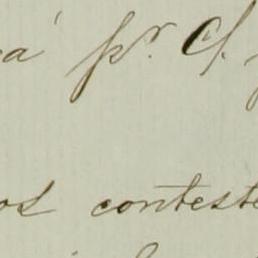 a pr. C.
os conteste